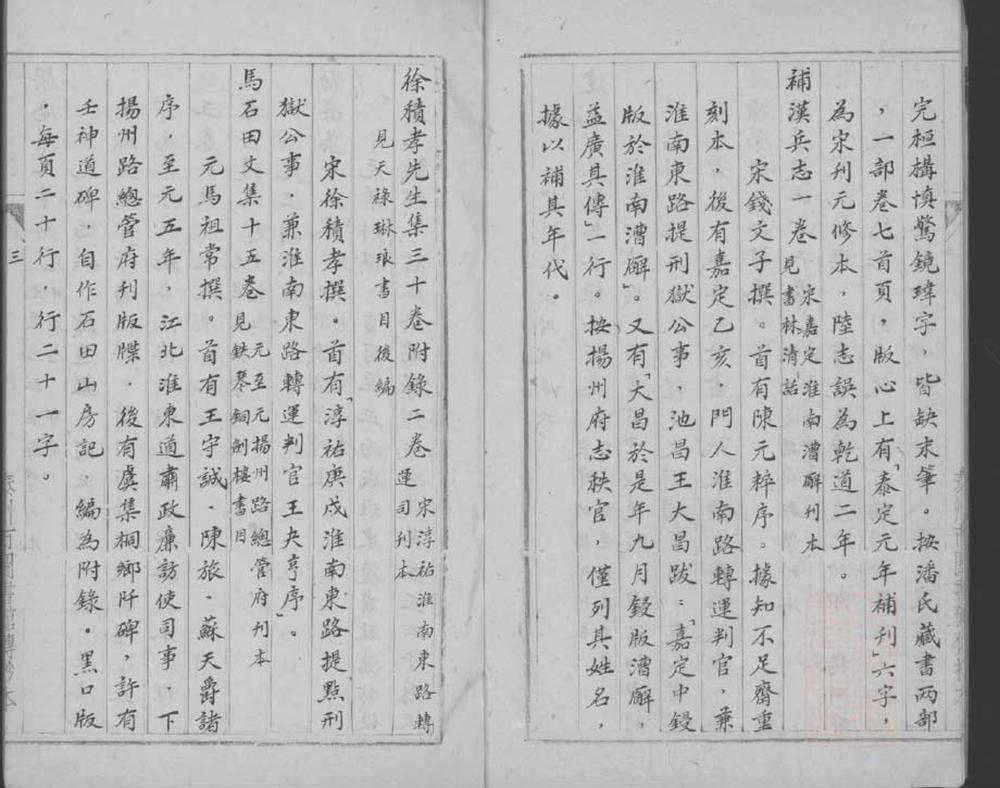 完桓構慎驚鏡瑋字，皆缺末筆。按潘氏藏書兩部
，一部卷七首頁，版心上有「泰定元年補刊」六字，
為宋刊元修本，陸志誤為乾道二年。
補漢兵志一卷 宋嘉定淮南漕廨刊本
見書林清話
宋錢文子撰。首有陳元粹序。據知不足齋重
刻本，後有嘉定乙亥，門人淮南路轉運判官，兼
淮南東路提刑獄公事，池昌王大昌跋：「嘉定中鋟
版於淮南漕廨」。又有「大昌於是年九月鋟版漕廨，
益廣其傳」一行。按揚州府志秩官，僅列其姓名，
據以補其年代。
徐積孝先生集三十卷附錄二卷 宋淳祐淮南東路轉
運司刊本
見天祿琳琅書目後編
宋徐積孝撰。首有「淳祐庚戌淮南東路提點刑
獄公事，兼淮南東路轉運判官王夬亨序」。
馬石田文集十五卷 元至元揚州路總管府刊本
見鉄琴銅劍樓書目
元馬祖常撰。首有王守誠．陳旅．蘇天爵諸
序，至元五年，江北淮東道肅政廉訪使司事，下
揚州路總管府刊版牒．後有虞集桐鄉阡碑，許有
壬神道碑．自作石田山房記．編為附錄。黑口版
．每頁二十行．行二十一字。
三